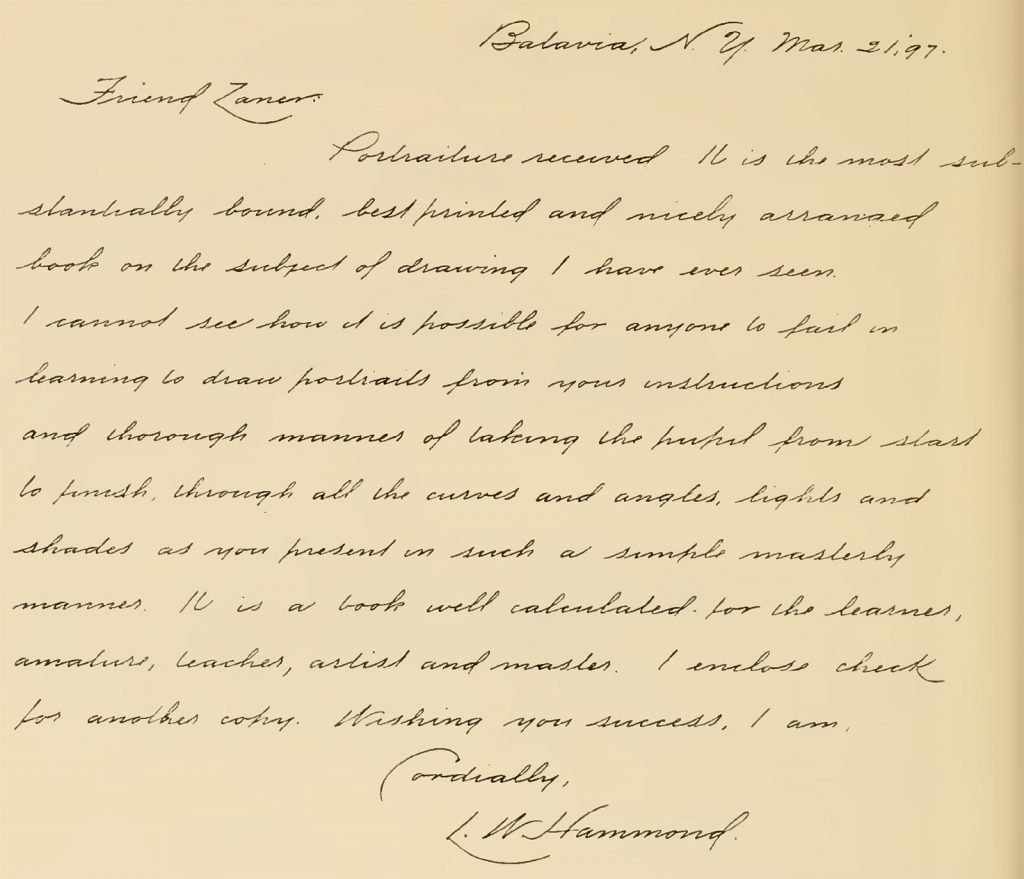 Batavia, N. Y. Mar. 21, 97.
Friend Zaner:
Portraiture received It is the most sub-
stantially bound, best printed and nicely arranged
book on the subject of drawing I have ever seen.
I cannot see how it is possible for anyone to fail in
learning to draw portraits from your instructions
and thorough manner of taking the pupil from start
to finish, through all the curves and angles, lights and
shades as you present in such a simple masterly
manner. It is a book well calculated for the learner,
amature, teacher, artist and master. I enclose check
for another copy. Wishing you success, I am,
Cordially,
L. W. Hammond.